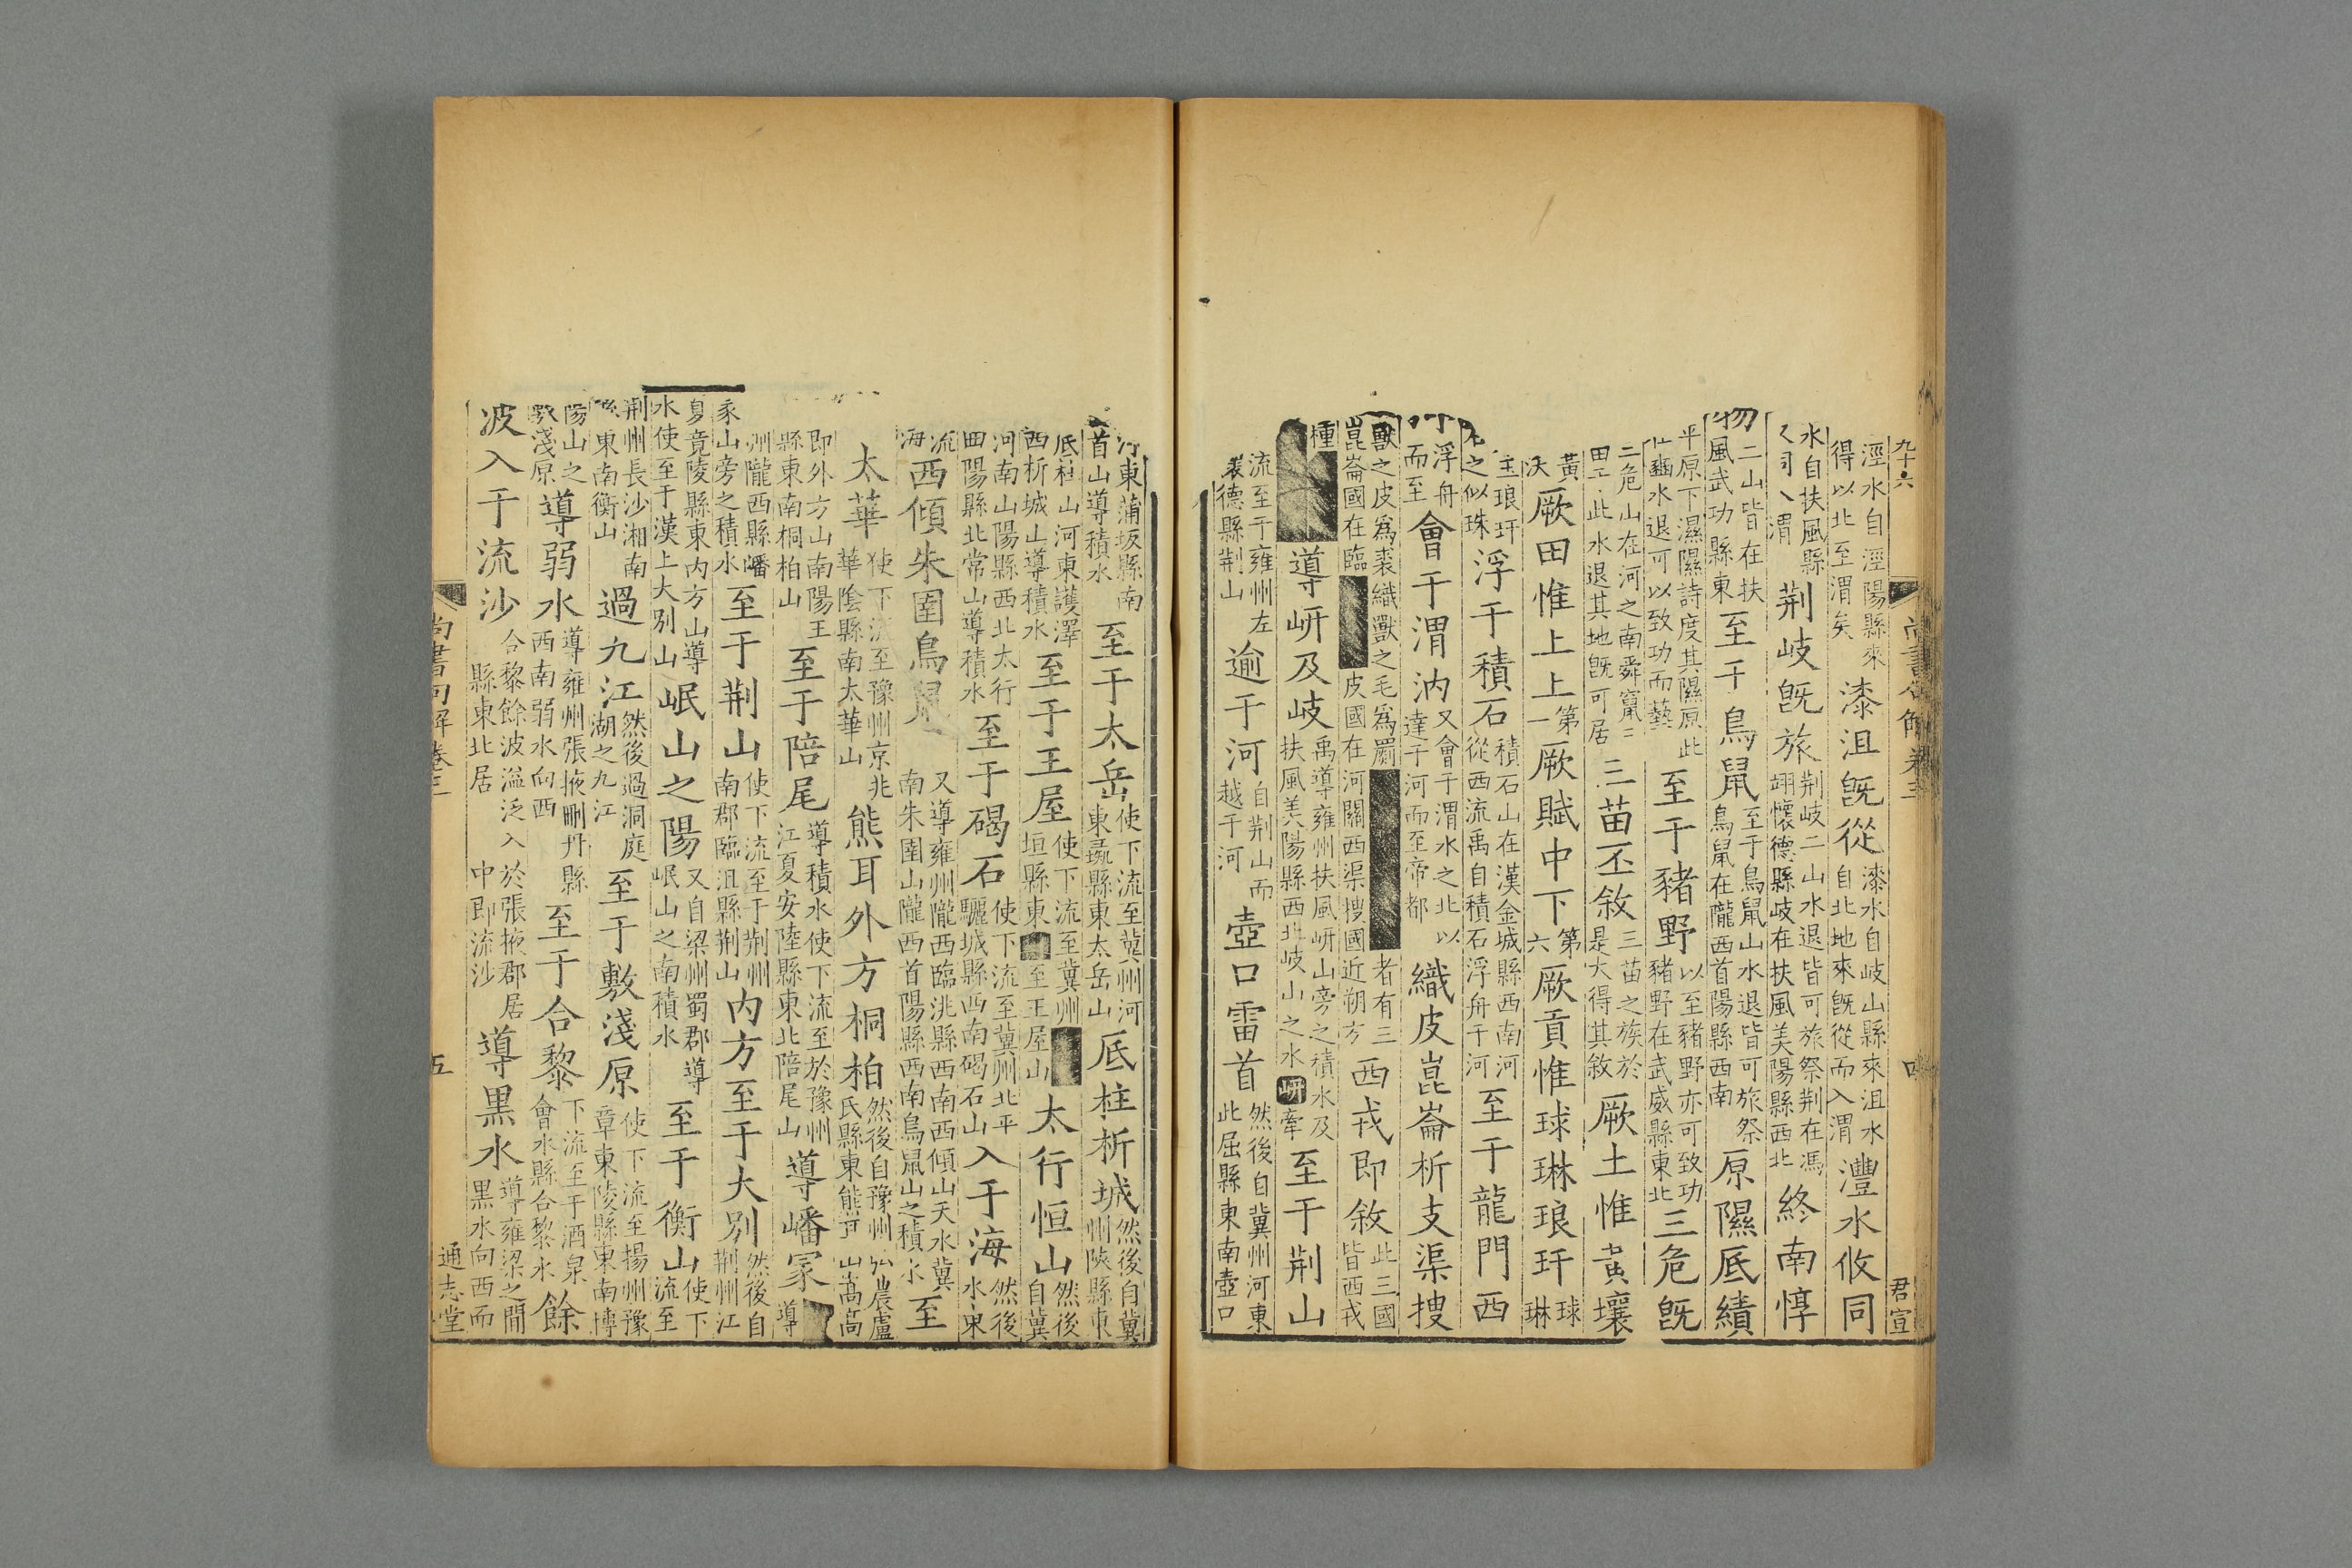 涇水自涇陽縣來得以北至渭矣漆沮旣從漆水自岐山縣來沮水自北地來旣從而入渭灃水攸同
水自扶風縣渭荆岐旣旅荆岐二山水退皆可旅祭荆在馮翊懷德縣岐在扶風美陽縣西北終南惇
物二山皆在扶風武功縣東至于鳥鼠至于鳥鼠山水退皆可旅祭鳥鼠在隴西首陽縣西南原隰厎績
平原下濕隰詩度其隰原此豳水退可以致功而藝至于豬野以至豬野亦可致功豬野在武威縣東北三危旣
二危山在河之南舜竄三此水退其地旣可居三苗丕敘三苗之族於是大得其敘厥土惟黃壤
黃厥田惟上上第一厥賦中下第六厥貢惟球琳琅玕球琳
玉琅玕之似珠浮于積石積石山在漢金城縣西南河從西流禹自積石浮舟于河至于龍門西
河浮舟而至會于渭汭又會于渭水之北以達于河而至帝都織皮崑崙析支渠搜
獸之皮爲裘織獸之毛爲罽者有三崑崙國在臨皮國在河關西渠搜國近朔方西戎即敘此三國皆西戎
種導岍及岐禹導雍州扶風岍山旁之積水及扶風美陽縣西北岐山之水岍牽至于荆山
流至于雍州左德縣荆山逾于河自荆山而越于河壺口雷首然後自冀州河東此屈縣東南壺口
河東蒲坂縣南首山導積水至于太岳使下流至冀州河東彘縣東太岳山厎柱析城然後自冀州陝縣東
厎柱山河東護澤西析城山導積水至于王屋使下流至冀州垣縣東至王屋山太行恒山然後自冀
河南山陽縣西北太行田陽縣北常山導積水至于碣石使下流至冀州北平驪城縣西南碣石山入于海然後水東
流海西傾朱圉鳥鼠又導雍州隴西臨洮縣西南西傾山天水冀南朱圉山隴西首陽縣西南鳥鼠山之積水至
太華使下流至豫州京兆華陰縣南太華山熊耳外方桐柏然後自豫州弘農盧氏縣東熊耳山嵩高
即外方山南陽王縣東南桐柏山至于陪尾導積水使下流至於豫州江夏安陸縣東北陪尾山導嶓冢導
州隴西縣嶓冢山旁之積水至于荆山使下流至于荆州南郡臨沮縣荆山内方至于大别然後自荆州江
夏竟陵縣東内方山導水使至于漢上大别山岷山之陽又自梁州蜀郡導岷山之南積水至于衡山使下流至
荆州長沙湘南縣東南衡山過九江然後過洞庭湖之九江至于敷淺原使下流至揚州豫章東陵縣東南博
陽山之敷淺原導弱水導雍州張掖刪丹縣西南弱水向西至于合黎下流至于酒泉會水縣合黎水餘
波入于流沙合黎餘波溢泛入於張掖郡居縣東北居中即流沙導黑水導雍梁之間黑水向西而
九十六
尚書句解卷三
君宣
尚書句解卷三
五
通志堂